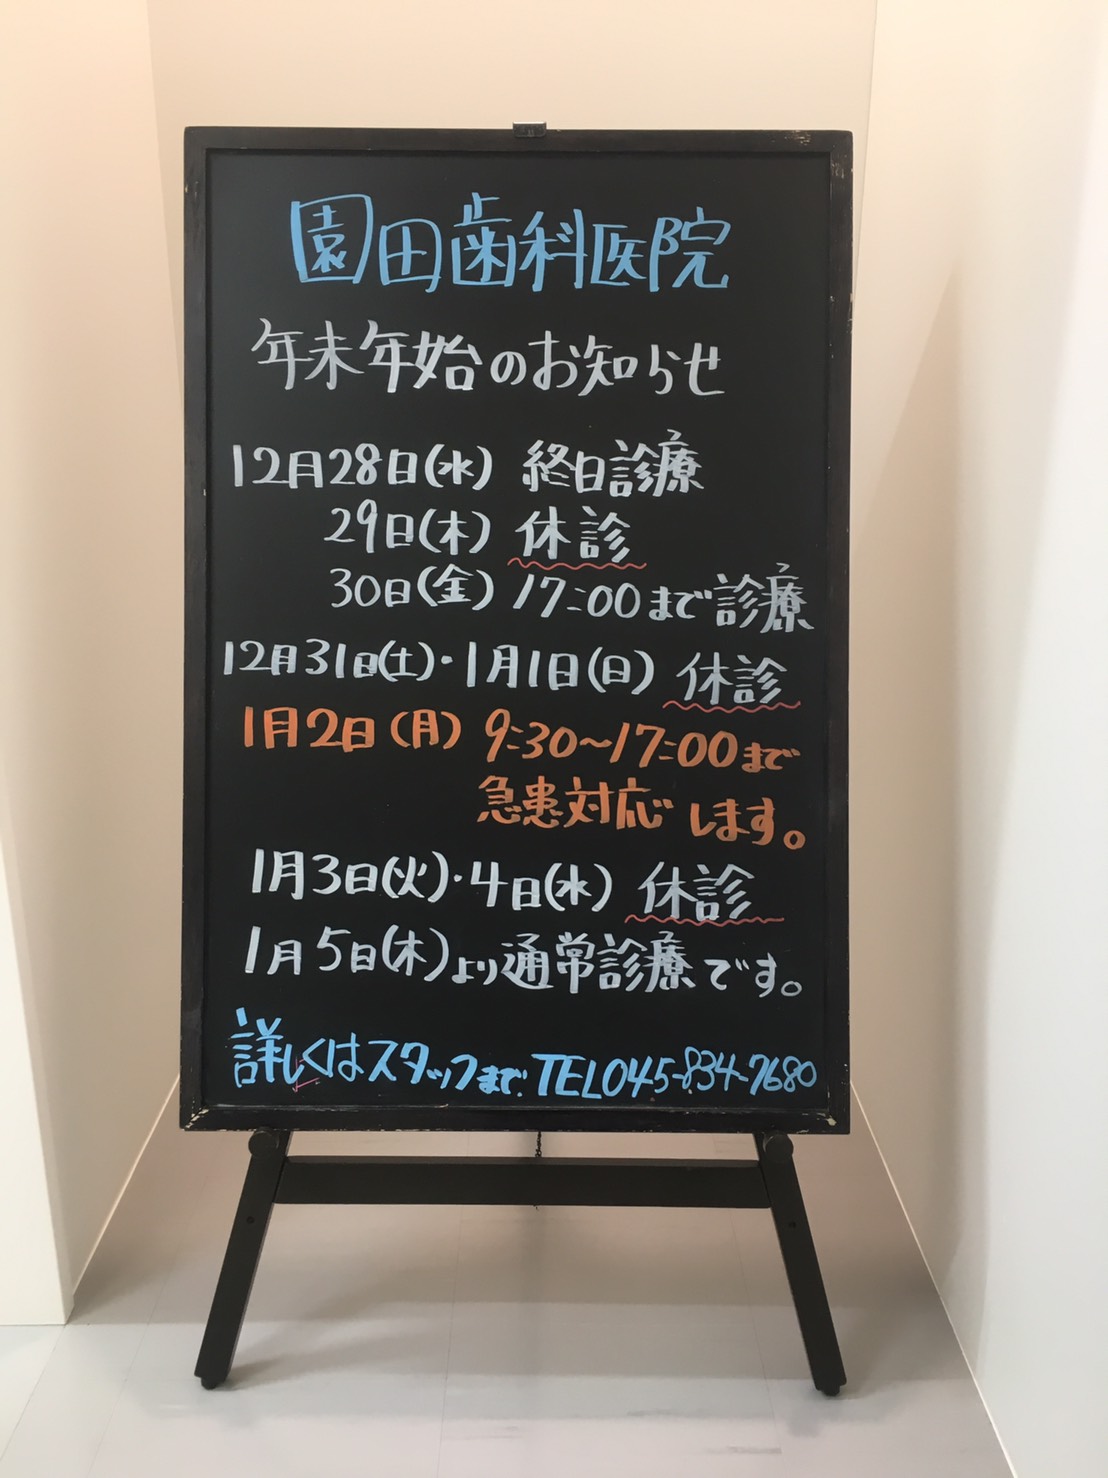 園田歯科医院
年末年始のお知らせ
12月28日(水) 終日診療
29日(木) 休診
30日(金) 17:00まで診療
12月31日(土)・1月1日(日) 休診
1月2日(月) 9:30~17:00まで
急患対応します。
1月3日(火)・4日(水) 休診
1月5日(木)より通常診療です。
詳しくはスタッフまで. TEL045-834-7680